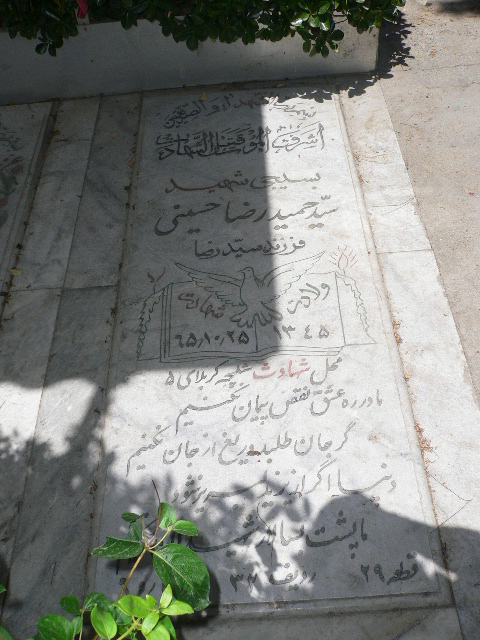 اشرف الموت قتل الشهادة
بسیجی شهید
سید حمید رضا حسینی
فرزند سید رضا
ولادت شهادت
۱۳۴۵ ۶۵/۱۰/۲۵
محل شهادت شلمچه کربلای ۵
ما در ره عشق نقض پیمان نکنیم
گر جان طلبد دریغ از جان نکنیم
دنیا اگر از یزید لبریز شود
ما پشت بسالار شهیدان نکنیم
قطعه ۲۹ ردیف ۳۲